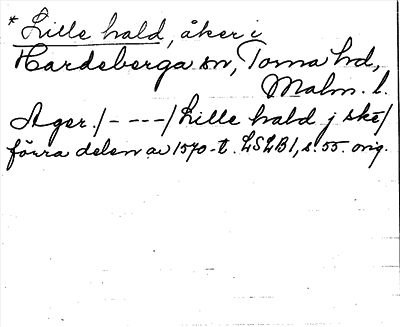 * Lille hald, åker i
Hardeberga sn, Torna hd,
Malm. l.
Ager. /- - - -/ Lille hald j ske/
förra delen av 1570-t. LSLB1, s. 55. orig.